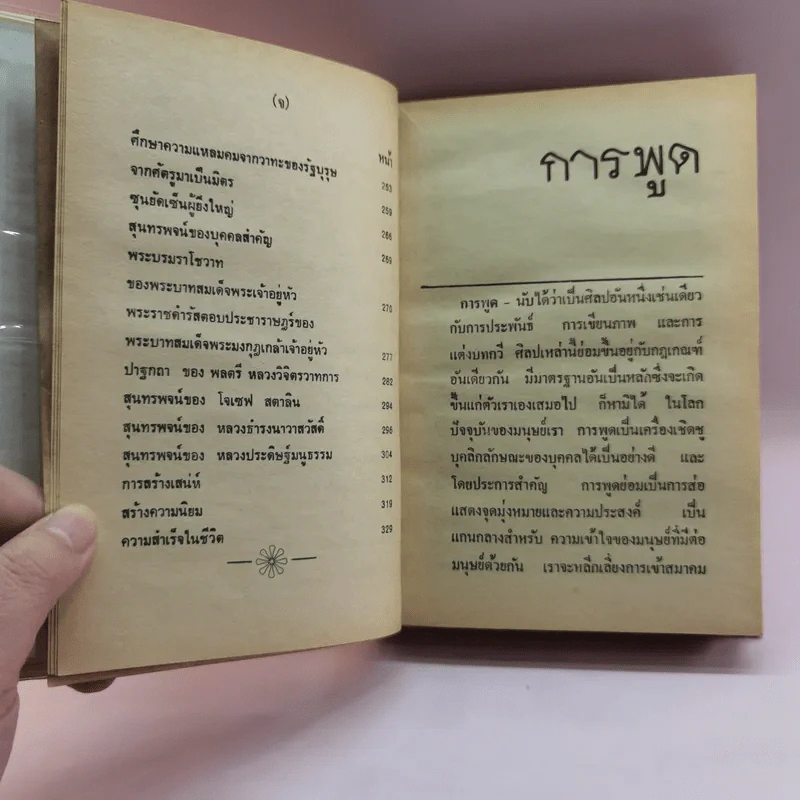 (จ)
หน้า
ศึกษาความแหลมคมจากวาทะของรัฐบุรุษ 253
จากศัตรูมาเป็นมิตร 259
ซุนยัดเซ็นผู้ยิ่งใหญ่ 266
สุนทรพจน์ของบุคคลสำคัญ 269
พระบรมราโชวาท
ของพระบาทสมเด็จพระเจ้าอยู่หัว 270
พระราชดำรัสตอบประชาราษฎร์ของ
พระบาทสมเด็จพระมงกุฎเกล้าเจ้าอยู่หัว 277
ปาฐกถา ของ พลตรี หลวงวิจิตรวาทการ 282
สุนทรพจน์ของ โจเซฟ สตาลิน 294
สุนทรพจน์ของ หลวงธำรงนาวาสวัสดิ์ 296
สุนทรพจน์ของ หลวงประดิษฐ์มนูธรรม 304
การสร้างเสน่ห์ 312
สร้างความนิยม 319
ความสำเร็จในชีวิต 329
การพูด
การพูด – นับได้ว่าเป็นศิลปอันหนึ่งเช่นเดียว
กับการประพันธ์ การเขียนภาพ และการ
แต่งบทกวี ศิลปเหล่านี้ย่อมขึ้นอยู่กับกฎเกณฑ์
อันเดียวกัน มีมาตรฐานอันเป็นหลักซึ่งจะเกิด
ขึ้นแก่ตัวเราเองเสมอไป ก็หามิได้ ในโลก
ปัจจุบันของมนุษย์เรา การพูดเป็นเครื่องเชิดชู
บุคลิกลักษณะของบุคคลได้เป็นอย่างดี และ
โดยประการสำคัญ การพูดย่อมเป็นการส่อ
แสดงจุดมุ่งหมายและความประสงค์ เป็น
แกนกลางสำหรับ ความเข้าใจของมนุษย์ที่มีต่อ
มนุษย์ด้วยกัน เราจะหลีกเลี่ยงการเข้าสมาคม